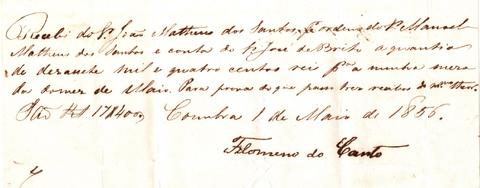 Recebi do Sr. João Matheus dos Santos, e ordem do Sr. Manoel
Matheus dos Santos e conta do Sr. José de Brito a quantia
de dezasete mil e quatro centos reis pa. a minha meza
do do mez de Maio. Para prova do que passo tres recibos do mesmo theor.
São R$ 17$400 Coimbra 1 de Maio de 1856.
Filomeno do Canto